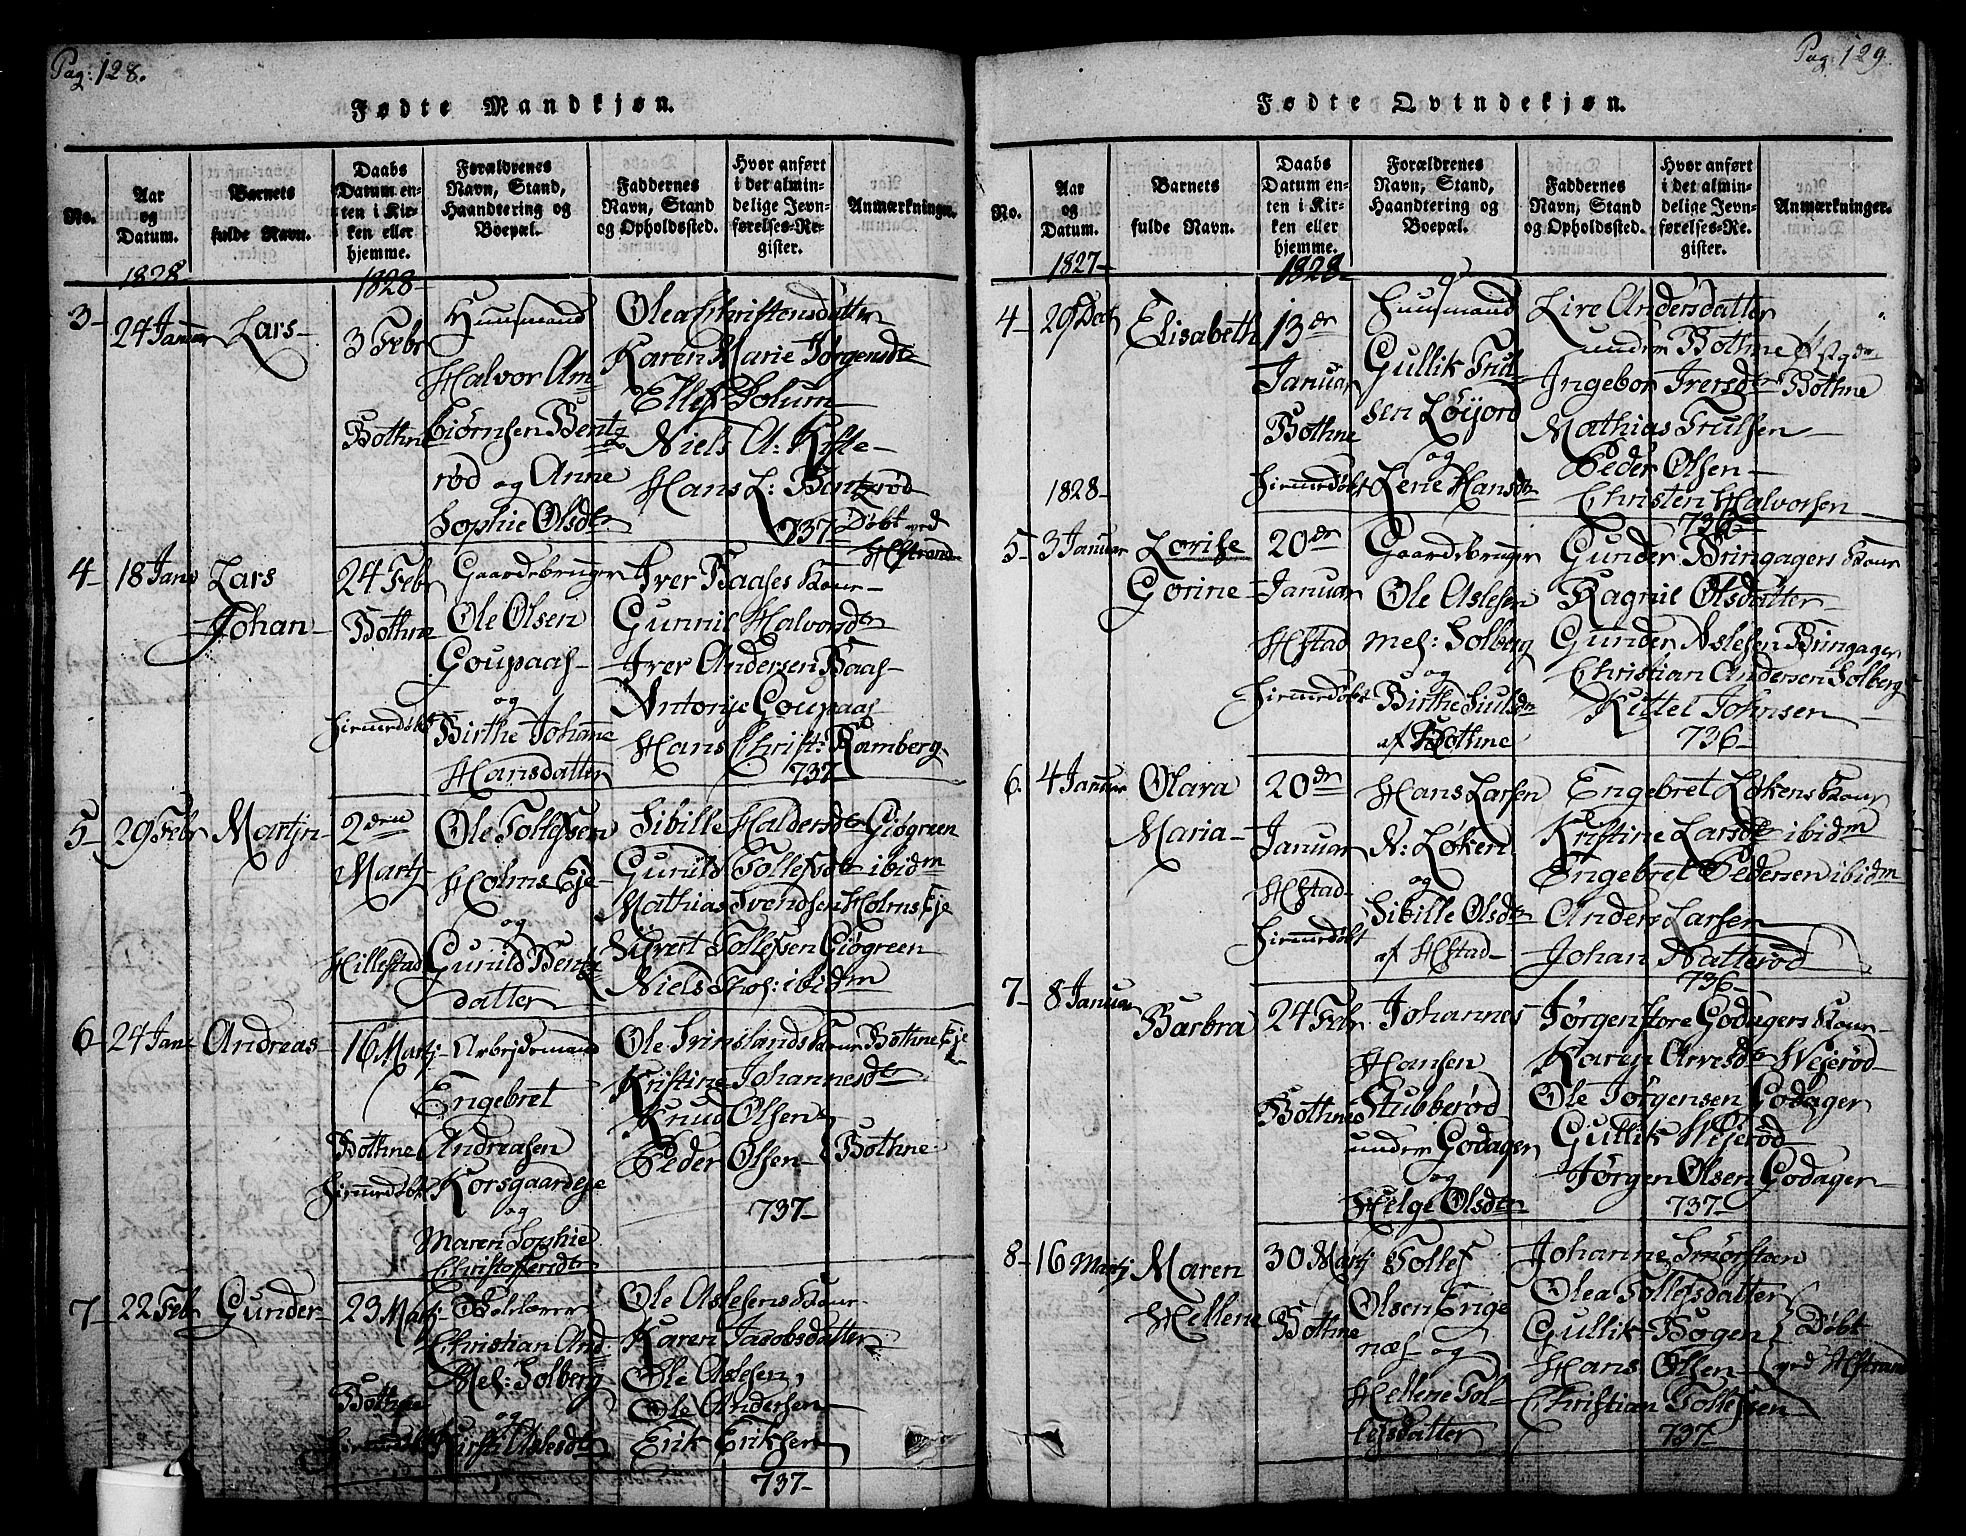 Pag: 128.
Fødte Mandkjøn.
No.
Aar og Datum.
Barnets fulde Navn.
Daabs Datum enten i Kirken eller hjemme.
Forældrenes Navn, Stand, Haandtering og Boepæl.
Faddernes Navn, Stand og Opholdssted.
Hvor anført i det almindelige Jevnførelses-Register.
Anmærkninger.
1828
1828-
3-
24 Januar
Lars-
3 Febr
Bothne
Huusmand
Halvor Am
biørnsen Bentz
rød og Anne
Sophie Olsdtr
Olea Christensdatter
Karen Marie Jørgensdtr
Ellef Solum
Niels A: Kifle
Hans L: Bentzrød
737-
Døbt ved
Hfstrand
4-
18 Janu
Lars
Johan-
24 Febr
Bothne
Hiemmedøbt
Gaardebruger
Ole Olsen
Goupaas-
og
Birthe Johane
Hansdatter
Iver Baases Kone-
Gunnil Halvorsdtr
Iver Andersen Baas-
Antonye Goupaas
Hans Christ: Ramberg
737
5-
29 Febr
Martin-
2den
Martj
Hillestad
Ole Tollefsen
Holms Eje-
og
Gunild Bentz
datter
Sibille Haldersdtr Giøgreen
Gunild Tollefsdtr ibidm
Mathias Svendsen Holms Eje
Sivert Tollefsen Giøgreen
Niels Thos: ibidm
6-
24 Jan
Andreas-
16 Martj
Bothne
Hiemmedøbt
Arbejdsmand
Engebret
Andreasen
Korsgaardeje
og
Maren Sophie
Christoffersdtr
Ole Svinslands Kone Bothne Eje
Kristine Johannesdtr
Knud Olsen
Peder Olsen-
Bothne
737-
7-
22 Febr
Gunder-
23 Martj
Bothne
Hiemmedøbt
Christian And
Mel: Solberg
og
Kirsti Aslesdtr
Ole Aslesens Kone-
Karen Jacobsdatter
Ole Aslesen,
Ole Andersen
Erik Eriksen
737-
Pag: 129.
Fødte Qvindekjøn.
No.
Aar og Datum.
Barnets fulde Navn.
Daabs Datum enten i Kirken eller hjemme.
Forældrenes Navn, Stand, Haandtering og Boepæl.
Faddernes Navn, Stand og Opholdssted.
Hvor anført i det almindelige Jevnførelses-Register.
Anmærkninger.
1827-
1828-
4-
29 Dec
Elisabeth
13de
Januar
Bothne
Hiemmedøbt
Huusmand
Gullik Trul
sen Løyjord
og
Lene Hansdtr
Lire Andersdatter
under Bothne
Ingebor Iversdtr Bothne
Mathias Trulsen
Peder Olsen-
Christen Halvorsen-
736-
1828-
5-
3 Januar
Lovise
Gorine-
20de
Januar
Hfstad
Hiemmedøbt
Gaardebruger
Ole Aslesen
Mel: Solberg
og
Birthe Siulsdtr
af Bothne
Gunder Bringagers Kone
Ragnil Olsdatter-
Gunder Aslesen Bringager
Christian Andersen Solberg
Kittel Johnsen-
736-
6.
4 Januar
Olava
Maria-
20de
Januar
Hfstad-
Hiemmedøbt
Hans Larsen
N: Løken
og
Sibille Olsdtr
af Hfstad-
Engebret Løkens Kone
Kristine Larsdtr ibidm
Engebret Pedersen ibidm
Anders Larsen
Johan Natterød
736-
7-
8 Januar
Barbra
24 Febr
Bothne
Johannes
Hansen
Stubberød
under Godager
og
Helge Olsdtr
Jørgen store Godagers Kone-
Karen Arvesdtr Wejerød-
Ole Jørgensen Godager
Gullik Wejerød
Jørgen Olsen Godager
737-
8-
16 Martj
Maren
Hellene
30 Martj
Bothne
Tollef
Olsen Enge
næs og
Hellene Tol-
lefsdatter
Johanne Smørsteen
Olea Tollefsdatter
Gullik Bogen
Hans Olsen-
Christian Tollefsen-
Døbt
ved Hfstrand
737-